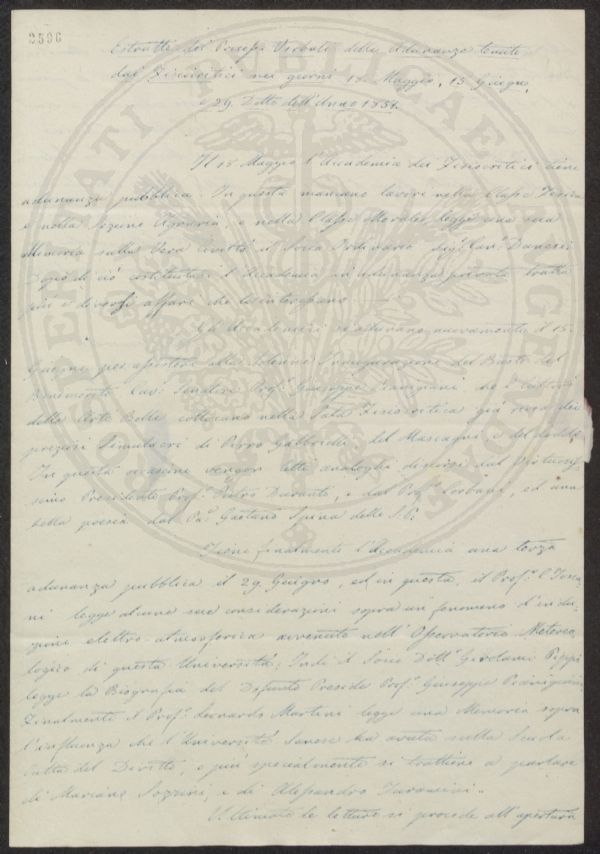 2596
Estratto dei Processi Verbali delle Adunanze tenute
dai Fisiocritici nei giorni 18 Maggio, 15 Giugno,
e 29 Detto dell'Anno 1851.
Il 18 Maggio l'Accademia dei Fisiocritici tiene
adunanza pubblica. In questa mancano lavori nella Classe Fisica
e nella Sezione Agraria, e nella Classe Morale legge una sua
Memoria sulla Vera civiltà il Socio Ordinario Danesi
Dopo di ciò costituitasi l'Accademia in adunanza privata tratta
più e diversi affari che la interessano
Gli Accademici si adunano nuovamente il 15
Giugno per apposto alla Solenne Inaugurazione del Busto del
Benemerito Cav. Senatore Prof. Giuseppe Pianigiani
delle Arte Belle collocano nella Sala Fisiocritica già ricca dei
preziosi Simulacri di Pirro Gabbrielli, del Mascagni, e del
In questa occasione vengon letti analoghi discorsi dal Virtuosis
simo Presidente Prof. Pietro Durante, e dal Prof. Corbani, ed una
bella poesia dal Pad. Gaetano Spina delle S. P.
Tiene finalmente l'Accademia una terza
adunanza pubblica il 29 Giugno, ed in questa, il Prof. C. Tosca
ni legge alcune sue considerazioni sopra un fenomeno d'indu
zione elettro-atmosferica avvenuto nell'Osservatorio Meteoro
logico di questa Università; Indi il Socio Dott. Girolamo Pippi
legge la Biografia del Defunto Preside Prof. Giuseppe Pianigiani
Finalmente il Prof. Leonardo Martini legge una Memoria sopra
l'influenza che l'Università Senese ha avuta nella Scuola
Culta del Diritto, e più specialmente si trattiene a parlare
di Mariano Sozzini, e di Alessandro Turamini.
Ultimate le letture si procede all'apertura